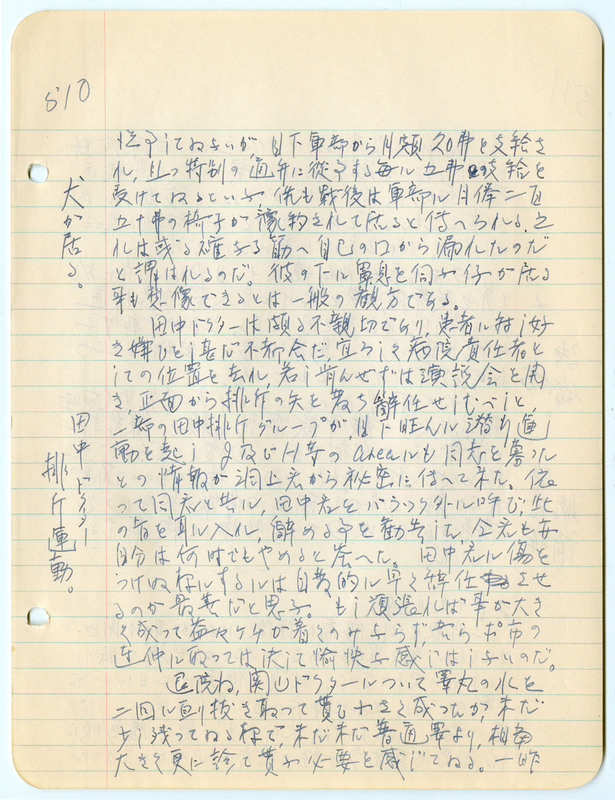 510
犬が居る。
田中ドクター
排斥運動。
して ねないが、目下軍部から月額 20弗を支給さ
れ、且つ特別の通弁に従事する毎に五弗の支給を
受けてねるといふ、併も戦後は軍部に月俸二百
五十弗の椅子が豫約されて居ると傳へられる。之
れは或る確かなる筋へ自己の口から漏れたのだ
と謂はれるのだ。彼の下に鼻息を伺ふ仔が居る
事も想像できるとは一般の観方である。
田中ドクターは頗る不親切であり、患者に対し好
き嫌ひをし甚だ不都合だ、宜ろしく病院責任者と
しての位置を去れ、若し肯んぜずば演説会を開
き、正面から排斥の矢を放ち辞任せしむべしと、
一部の田中排斥グループが、目下旺んに潜り運
動を起し J及びH等の areaにも同志を募つた
との情報が洞上君から秘密に傳へて来た。依
って同君と共に、田中君をバラック外に呼び、此
の旨を耳に入れ、辞める事を勧告した。仝君も亦
自分は何時でもやめると答へた。田中君に傷を
つけぬ様にするには自発的に早く辞任させ
るのが最善だと思ふ。もし頑張れば事が大き
く成って益々ケチが着くのみならず、若ら ポ市の
連仲に取っては決して愉快な感じはしないのだ。
退院ね、関山ドクターについて睾丸の水を
二回に亘り抜き取って貰ひ小さく成ったが、未だ
少し残ってねる様で、未だ未だ普通睾より、相当
大きく更に診て貰ふ必要を感じてねる。一昨